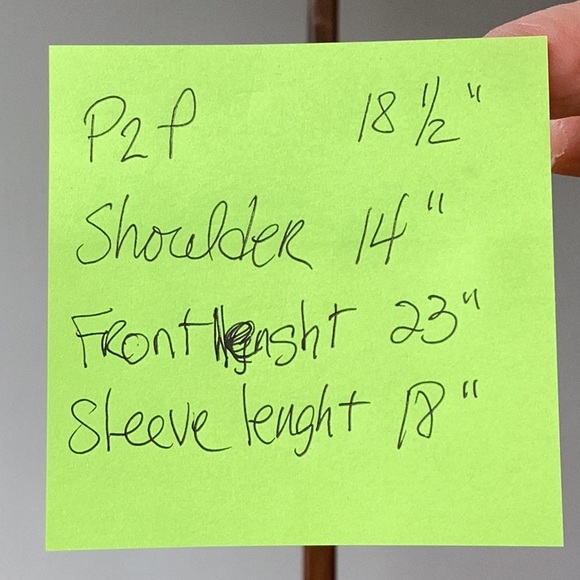 P2P 18 1/2"
Shoulder 14"
Front lenght 23"
Sleeve lenght 18"